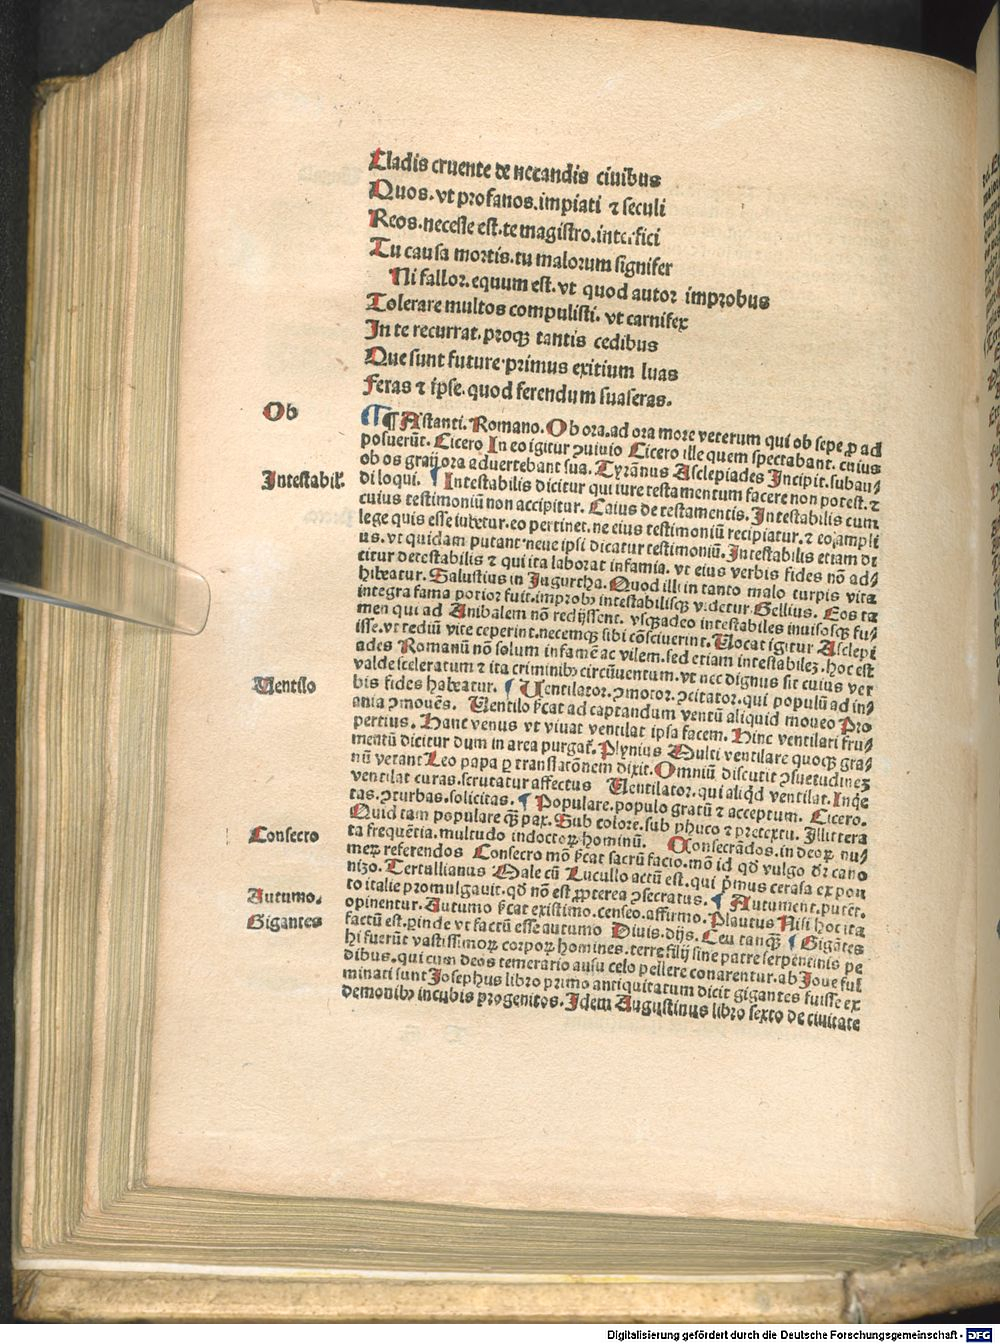 Cladis cruente de necandis ciuibus
Quos.vt profanos.impiati ⁊ seculi
Reos.necesse est.te magistro.interfici
Tu causa mortis.tu malorum signifer
Ni fallor.equum est.vt quod autor improbus
Tolerare multos compulisti.vt carnifex
In te recurrat.proqꝫ tantis cedibus
Que sunt future.primus exitium luas
Feras ⁊ ipse.quod ferendum suaseras.
Ob
¶ Astanti.Romano.Ob ora.ad ora more veterum qui ob sepe ꝓ ad
posuerūt.Cicero In eo igitur ꝯuiuio Cicero ille quem spectabant.cuius
ob os graij ora aduertebant sua.Tyrānus Asclepiades Incipit.subau/
Intestabil'.
di loqui. ¶ Intestabilis dicitur qui iure testamentum facere non potest.⁊
cuius testimoniū non accipitur.Caius de testamentis.Intestabilis cum
lege quis esse iubetur.eo pertinet.ne eius testimoniū recipiatur.⁊ eo ampli
us.vt quidam putant.neue ipsi dicatur testimoniū.Intestabilis etiam di
citur detestabilis ⁊ qui ita laborat infamia.vt eius verbis fides nō ad/
hibeatur.Salustius in Iugurtha.Quod illi in tanto malo turpis vita
integra fama potior fuit.improbꝰ intestabilisqꝫ videtur.Gellius.Eos ta
men qui ad Anibalem nō redijssent.vsqꝫadeo intestabiles inuisosqꝫ fu/
isse.vt tediū vite ceperint.necemqꝫ sibi cōsciuerint.Uocat igitur Asclepi
ades Romanū nō solum infamē ac vilem.sed etiam intestabilēꝫ.hoc est
valde sceleratum ⁊ ita criminibꝰ circūuentum.vt nec dignus sit cuius ver
Uentilo
bis fides habeatur. ¶ Uentilator.ꝯmotor.ꝯcitator.qui populū ad in/
ania ꝯmouēs. Uentilo ſicat ad captandum ventū aliquid moueo Pro
pertius.Hanc venus vt viuat ventilat ipsa facem.Hinc ventilari fru/
mentū dicitur dum in area purgat̉.Plynius Multi ventilare quoqꝫ gra/
nū vetant Leo papa ꝑ translatōnem dixit.Omniū discutit ꝯsuetudineꝫ
ventilat curas.scrutatur affectus Uentilator.qui aliqd ventilat.Inqe
tas.ꝯturbas.solicitas. ¶ Populare.populo gratū ⁊ acceptum. Cicero.
Quid tam populare qꝫ pax.Sub colore.sub phuco ⁊ pretextu.Illittera
Consecro
ta frequētia.multudo indoctoꝝ hominū. Consecrādos.in deoꝝ nu/
meꝝ referendos Consecro mō ſicat sacrū facio.mō id qd̄ vulgo dr̄ cano
nizo.Tertullianus Male cū Lucullo actū est.qui pͥmus cerasa ex pon
Autumo.
to italie promulgauit.qd̄ nō est ꝓpterea ꝯsecratus. ¶ Autument.putēt.
opinentur.Autumo ſicat existimo.censeo.affirmo.Plautus Nisi hoc ita
Gigantes
factū est.ꝓinde vt factū esse autumo Diuis.dijs.Ceu tanqꝫ ¶ Gigātes
hi fuerūt vastissimoꝝ corpoꝝ homines.terre filij sine patre serpentinis pe
dibus.qui cum deos temerario ausu celo pellere conarentur.ab Ioue ful
minati sunt Iosephus libro primo antiquitatum dicit gigantes fuisse ex
demonibꝰ incubis progenitos.Idem Augustinus libro sexto de ciuitate
Digitalisierung gefördert durch die Deutsche Forschungsgemeinschaft - DFG